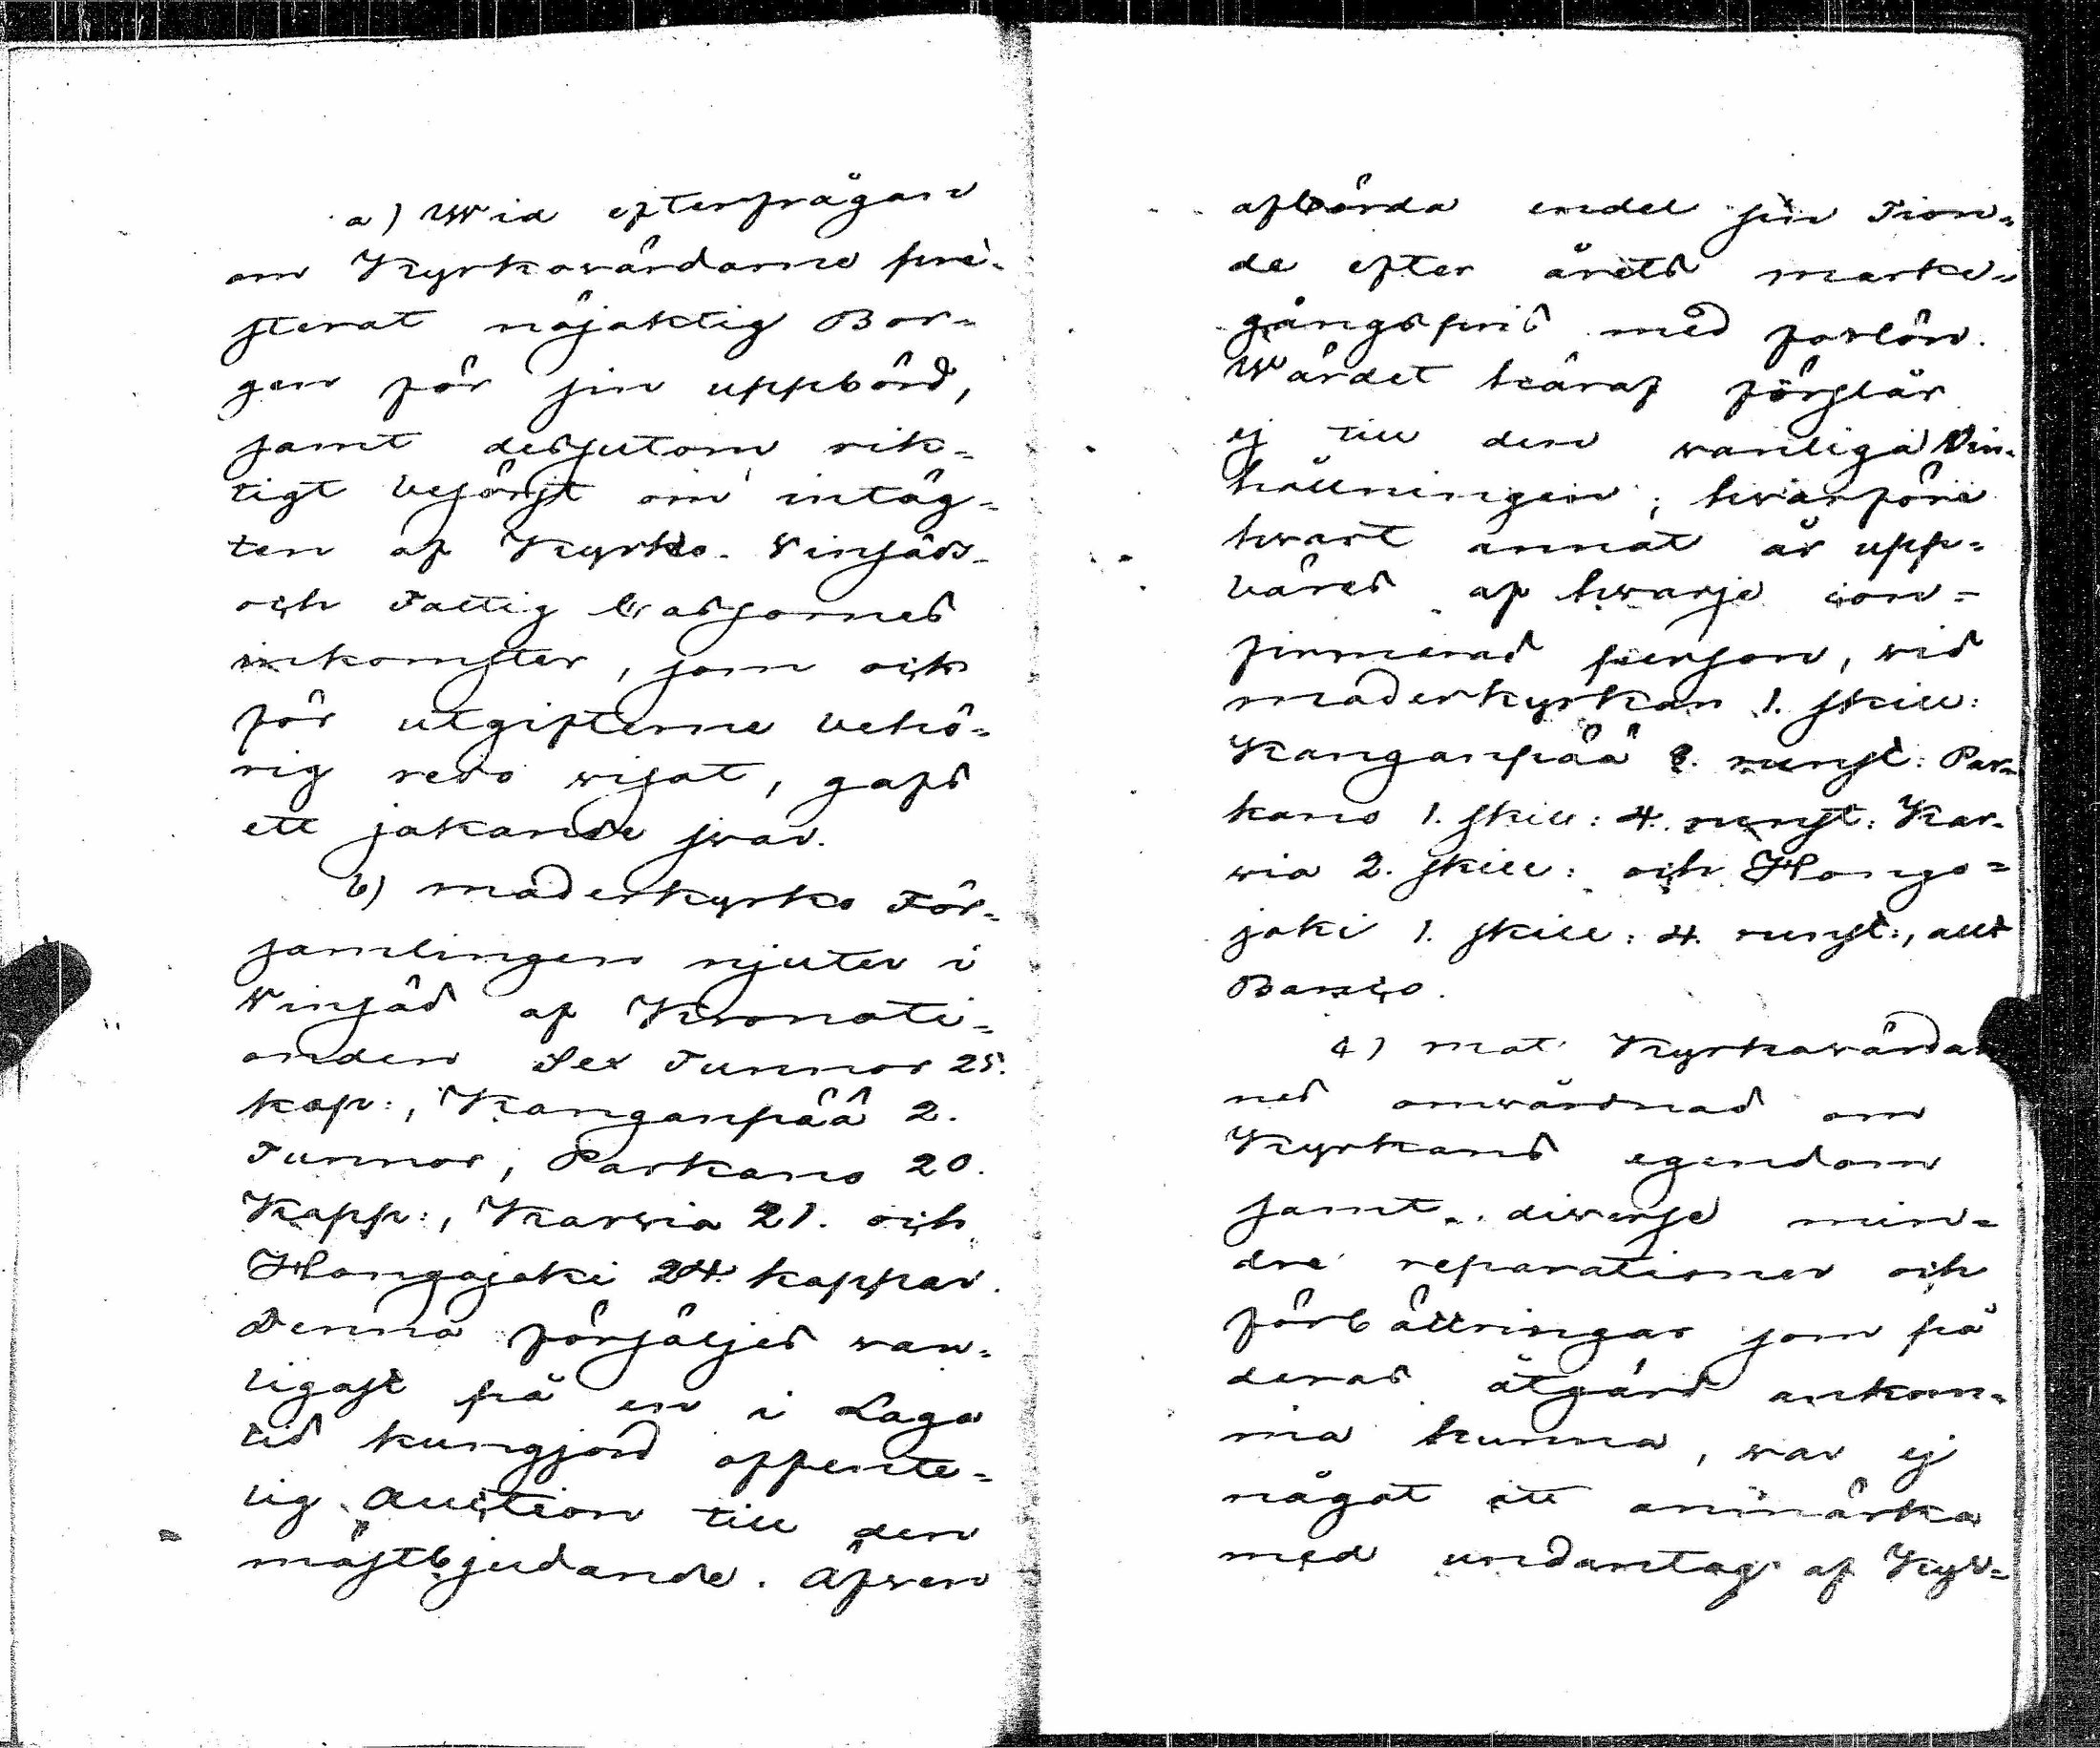 a) Wid efterfrågan
om Kyrkowärdarne pre-
sterat nöjaktig Bor-
gen för sin uppbörd,
samt dessutom rik-
tigt besörjt om intäg-
ten af Kyrko- Winsäds-
och Fattig Cassornes
inkomster, som och
för utgifterne behö-
rig redo wisat, gafs
ett jakande swar.
b) moderkyrko För-
samlingen njuter i
Winsäd af Kronoti-
onden Sex Tunnor 25.
kap:, Kanganpää 2.
Tunnor, Parkano 20.
Kapp:, Karwia 21. och
Hongojoki 24. kappar.
Denna försäljes wan-
ligast på en i Laga
tid kungjord offente-
lig Auction till den
mästbjudande. Äfwen
afbörda endel sin Tion-
de efter årets marke-
gångspris med forlön.
Wärdet häraf förslår
ej till den wanliga Vin-
hållningen; hwarföre
hwart annat år upp-
bäres af hwarje con-
firmerad person, wid
moderkyrkan 1. skill:
Kanganpää 8. runst: Par-
kano 1. skill: 4. runst: Kar-
wia 2. skill: och Hongo-
joki 1. skill: 4. runst:, allt
Banco.
c) mot Kyrkowärdar
nes omwårdnad om
Kyrkans egendom
samt diverse min-
dre reparationer och
förbättringar som på
deras åtgärd ankom-
ma kunna, war ej
något att anmärka
med undantag af Kyr-